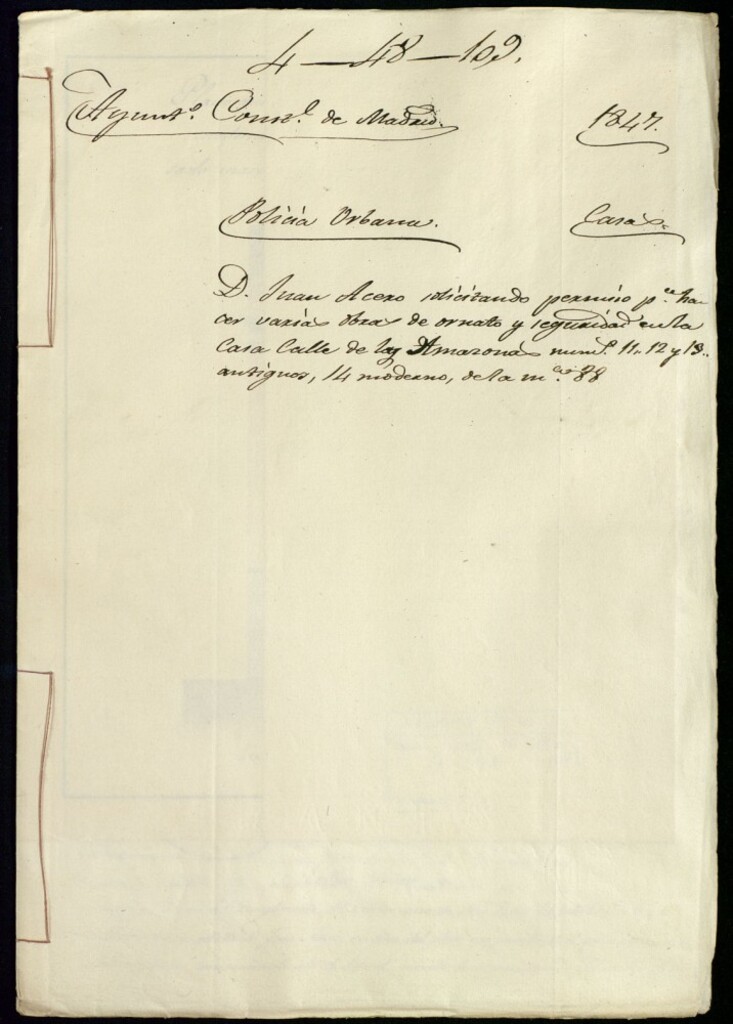 4-48-109.
Ayunt.º Const.l de Madrid. 1847.
Policia Urbana. Casas.
D. Juan Acero solicitando permiso p.a ha-
cer varias obras de ornato y seguridad en la
Casa Calle de las Amazonas num.s 11, 12 y 13..
antiguos, 14 moderno, de la m.na 88